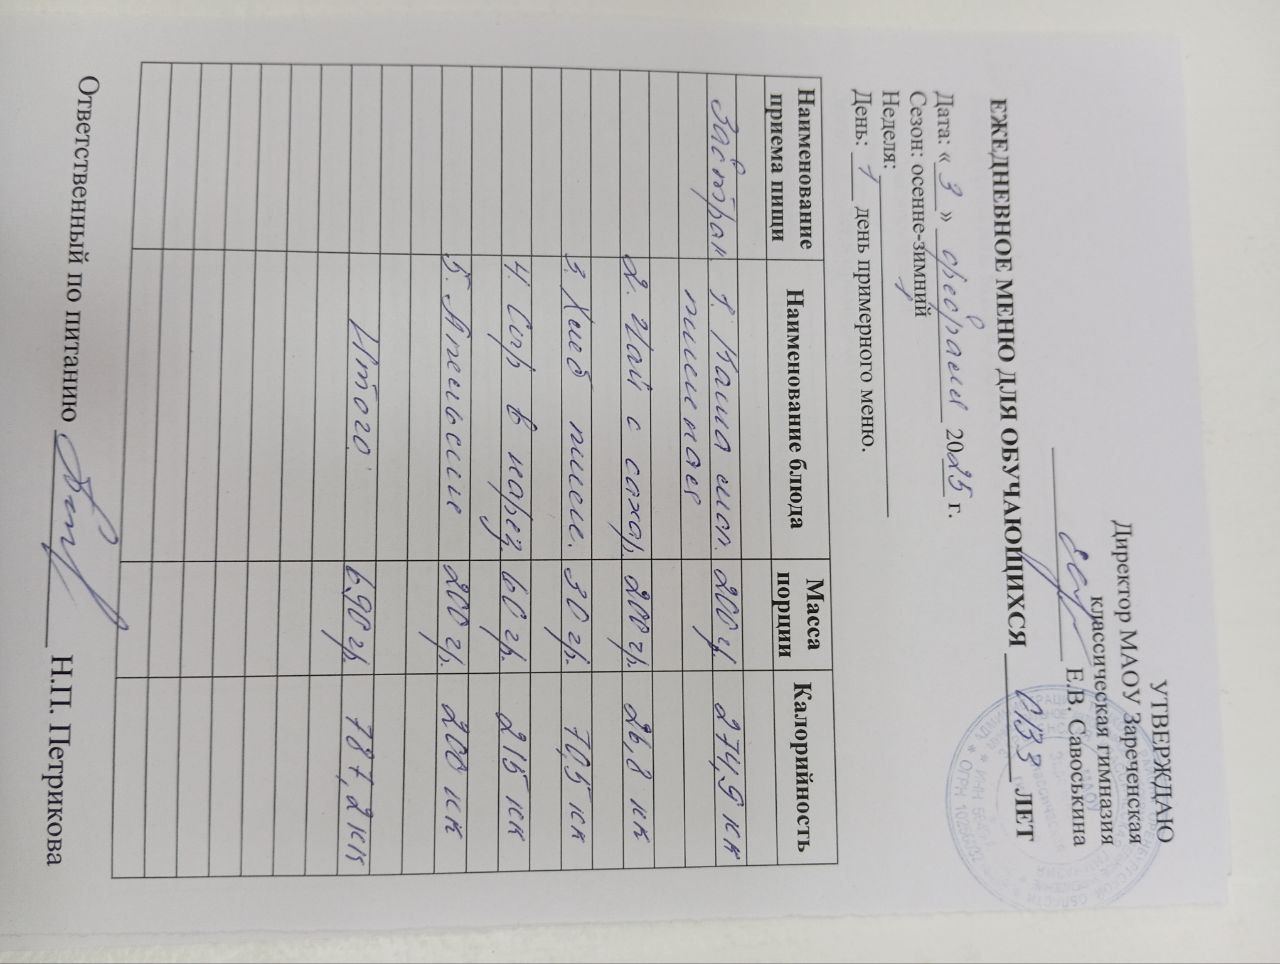 УТВЕРЖДАЮ
Директор МАОУ Зареченская
классическая гимназия
Е.В. Савоськина
ЕЖЕДНЕВНОЕ МЕНЮ ДЛЯ ОБУЧАЮЩИХСЯ ОВЗ ЛЕТ
Дата: « 3 » февраля 2025 г.
Сезон: осенне-зимний
Неделя: 1
День: 1 день примерного меню.
Наименование приема пищи Наименование блюда Масса порции Калорийность
Завтрак 1. Каша мол. 200 гр. 274,9 кк
пшенная
2. Чай с сахар. 200 гр. 26,8 кк
3. Хлеб пшен. 30 гр. 70,5 кк
4. Сыр в нарез. 60 гр. 215 кк
5. Апельсин 200 гр. 200 кк
Итого: 690 гр. 787,2 кк
Ответственный по питанию Н.П. Петрикова